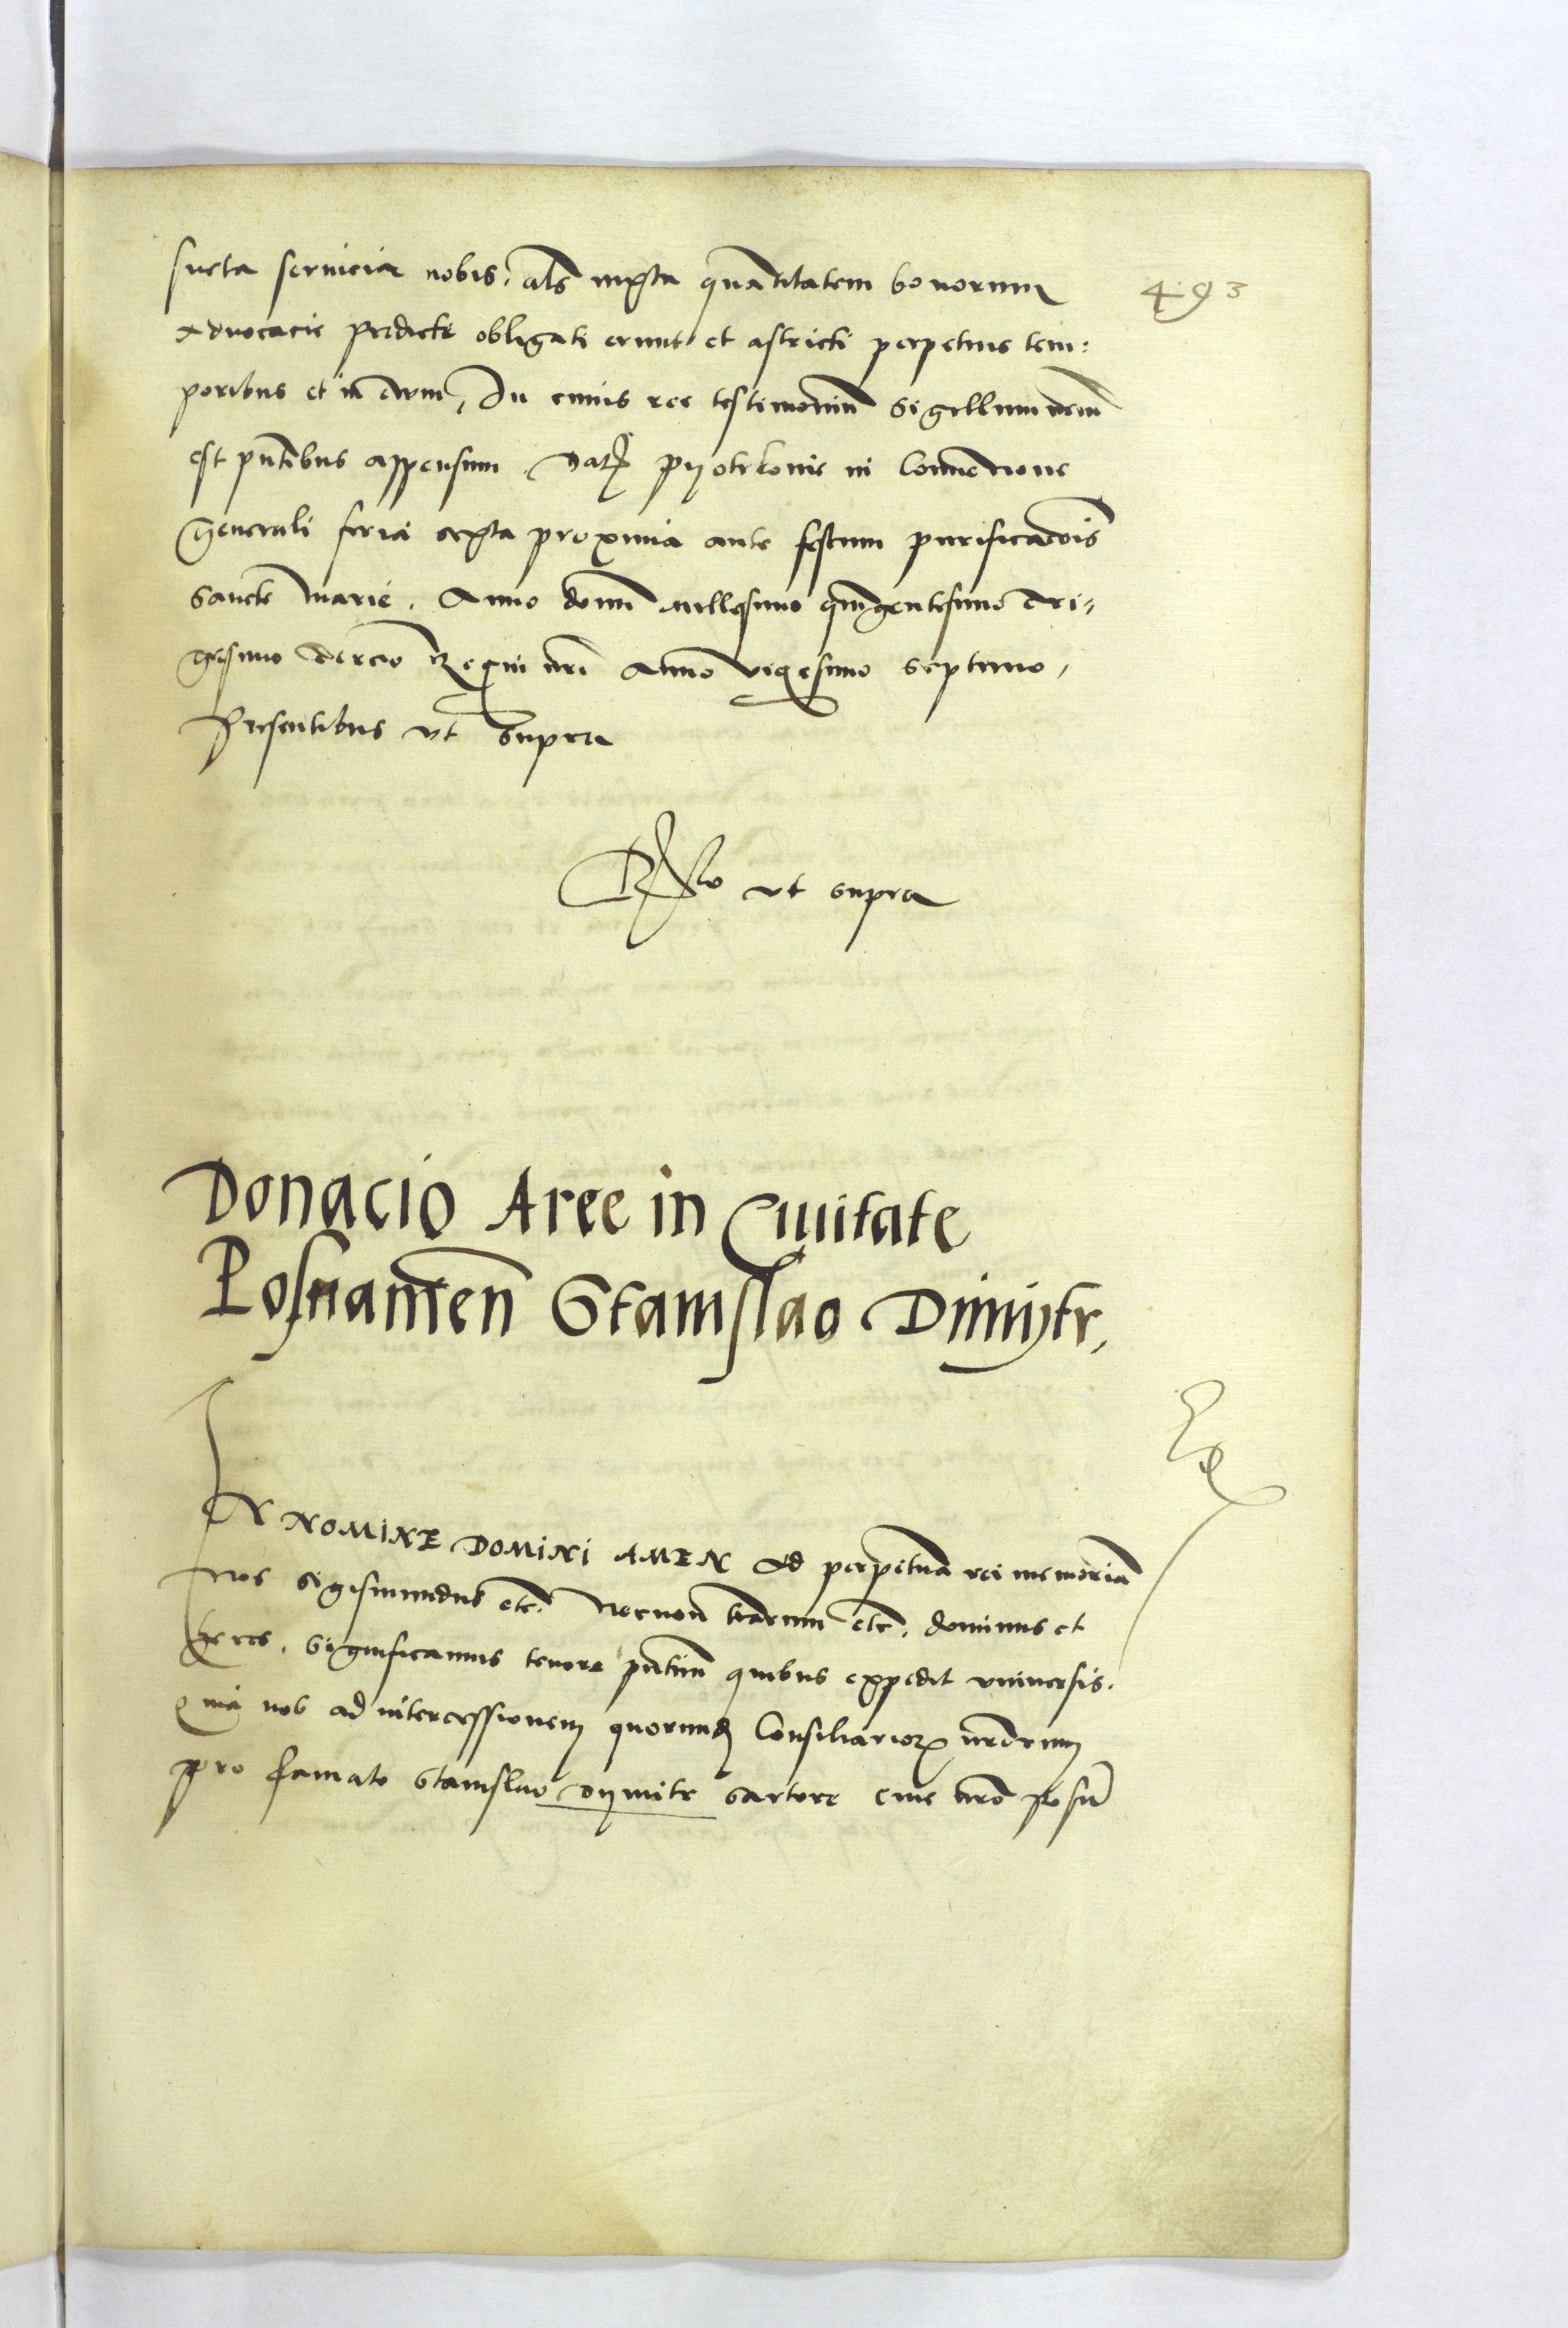 sueta seruicia nobis, als iuxta quantitatem bonorum
493
Aduocacie predicte obligati erunt et astricti perpetuis tem:
poribus et in ewm, In cuius rei testimoniu Sigillum nrm
est pntibus appensum. Dat pyotrkouie in Conuencione
Generali feria sexta proxima ante festum purificacois
Sancte Marie. Anno domi millesimo quingentesimo tri,,
gesimo tercio Regni nri Anno vigesimo septimo,
Presentibus vt Supra
Rlo vt supra
Donacio Aree in Ciuitate
Posnanien Stanislao Dimijtr,
IN NOMINE DOMINI AMEN Ad perpetua rei memoria
Nos Sigismundus etc. Necnon trarum etc. dominus et
heres. Significamus tenore pntiu quibus expedit vniuersis.
Quia nos ad intercessionem quorund Consiliarior nrorum
pro famato Stanislao Dymitr Sartore ciue nro posn